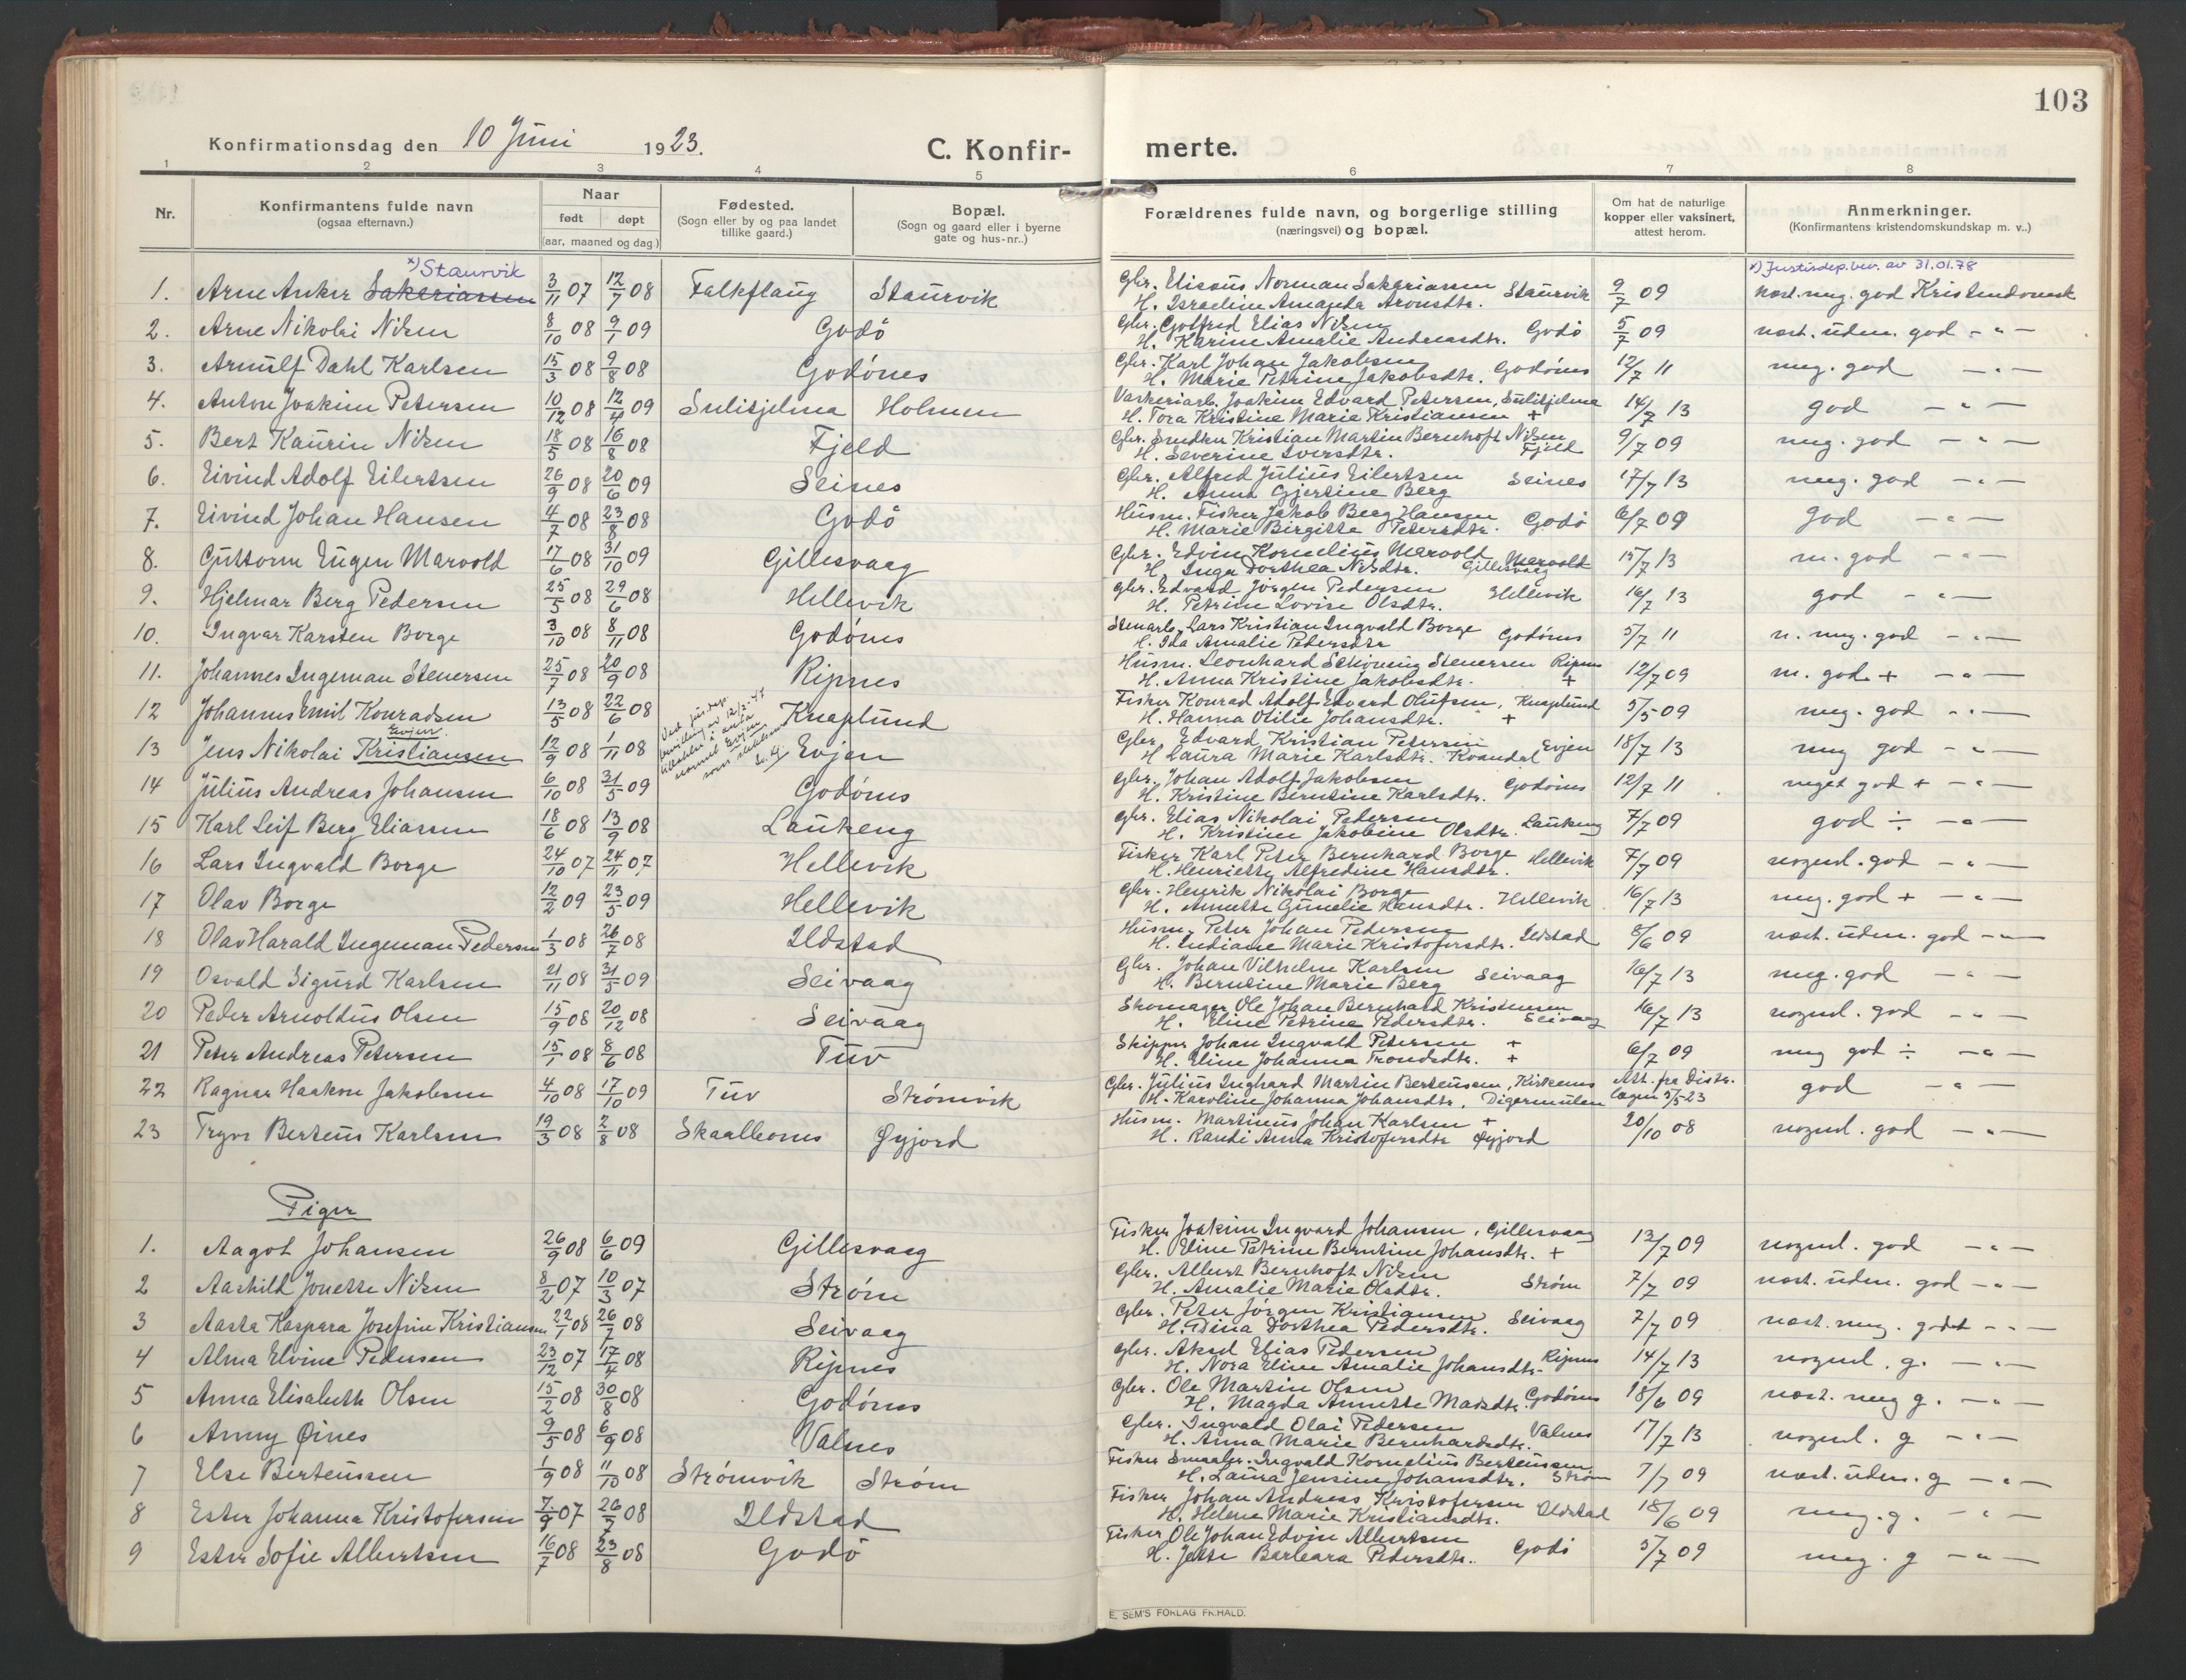 103
Konfirmationsdag den 10 Juni 1923.
C. Konfirmerte.
1 2 3 4 5 6 7 8
Nr.
Konfirmantens fulde navn
(ogsaa efternavn.)
Naar
født døpt
(aar, maaned og dag.)
Fødested.
(Sogn eller by og paa landet
tillike gaard.)
Bopæl.
(Sogn og gaard eller i byerne
gate og hus-nr..)
Forældrenes fulde navn, og borgerlige stilling
(næringsvei) og bopæl.
Om hat de naturlige
kopper eller vaksinert,
attest herom.
Anmerkninger.
(Konfirmantens kristendomskundskap m. v..)
x) Staurvik
x) Justisdep. bev. av 31.01.78
1. Arne Anker Sakariassen 3/11 07 12/7 08 Falkflaug Staurvik Gbr. Elisæus Norman Sakariassen Staurvik 9/7 09 næst. meg. god Kristendomsk
H. Israeline Amanda Aronsdtr.
2. Arne Nikolai Nilsen 8/10 08 9/1 09 Godö Gbr. Golfred Elias Nilsen Godö 5/7 09 næst. udm. god - " -
H. Karine Amalie Andreasdtr.
3. Arnulf Dahl Karlsen 15/3 08 9/8 08 Godönes Gbr. Karl Johan Jakobsen 12/7 11 meg. god - " -
H. Marie Petrine Jakobsdtr. Godönes
4. Anton Joakim Petersen 10/12 08 12/4 09 Sulitjelma Holmen Værkeriarb. Joakim Edvard Petersen, Sulitjelma 14/7 13 god - " -
H. Tora Kristine Marie Kristiansen +
5. Bert Kaurin Nilsen 18/5 08 16/8 08 Fjeld Gbr. Smeden Kristian Martin Bernhoft Nilsen 9/7 09 meg. god - " -
H. Severine Iversdtr. Fjeld
6. Eivind Adolf Eilertsen 26/9 08 20/6 09 Seines Gbr. Alfred Julius Eilertsen Seines 17/7 13 meg. god - " -
H. Anna Gjertine Berg
7. Eivind Johan Hansen 4/7 08 23/8 08 Godö Husm. Fisker Jakob Berg Hansen Godö 6/7 09 god - " -
H. Marie Birgitte Petersdtr.
8. Guttorm Eugen Marvold 17/6 08 31/10 09 Gillesvaag Gbr. Edvin Kornelius Marvold 15/7 13 m. god - " -
H. Inga Dorthea Nilsdtr. Gillesvaag Marvold
9. Hjelmar Berg Pedersen 25/5 08 29/6 08 Hellevik Gbr. Edvard Jörgen Pedersen Hellevik 16/7 13 god - " -
H. Petrine Lovise Olsdtr.
10. Ingvar Karsten Borge 3/10 08 8/11 08 Godönes Stenarb. Lars Kristian Ingvald Borge Godönes 5/7 11 n. meg. god - " -
H. Ida Amalie Pedersdtr
11. Johannes Ingeman Stenersen 25/7 08 20/9 08 Ripnes Husm. Leonhard Schöning Stenersen Ripnes 12/7 09 m. god + - " -
H. Anna Kristine Jakobsdtr. +
12 Johannes Emil Konradsen 13/5 08 22/6 08 Knaplund Fisker Konrad Adolf Edvard Olufsen, Knaplund 5/5 09 meg. god - " -
H. Hanna Otilie Johansdtr. +
Evjen
13 Jens Nikolai Kristiansen 12/9 08 1/11 08 Evjen Gbr. Edvard Kristian Petersen Evjen 18/7 13 meg god - " -
H Laura Marie Karlsdtr. Kvandal
Ved jus. dep.
bevilling av 12/2-47
tilladelse i anta
navnet Evjen
som slektsnavn
14 Julius Andreas Johansen 6/10 08 31/5 09 Godönes Gbr. Johan Adolf Jakobsen Godönes 12/7 11 meget god + - " -
H. Kristine Berntine Karlsdtr.
15 Karl Leif Berg Eliassen 18/6 08 13/9 08 Laukeng Gbr. Elias Nikolai Pedersen 7/7 09 god ÷ - " -
H. Kristine Jakobine Olsdtr. Laukeng
16 Lars Ingvald Borge 24/10 07 24/11 07 Hellevik Fisker Karl Peter Bernhard Borge Hellevik 7/7 09 nogenl. god - " -
H. Henriette Alfredine Hansdtr.
17 Olav Borge 12/2 09 23/5 09 Hellevik Gbr. Henrik Nikolai Borge 16/7 13 meg. god + - " -
H. Annette Gunelie Hansdtr. Hellevik
18 Olav Harald Ingeman Pedersen 1/3 08 26/7 08 Ildstad Husm. Peter Johan Pedersen 8/6 09 næst. udm. god - " -
H. Indiane Marie Kristofersdtr. Ildstad
19 Osvald Sigurd Karlsen 21/11 08 31/5 09 Seivaag Gbr. Johan Vilhelm Karlsen Seivaag 16/7 13 meg. god - " -
H. Berntine Marie Berg
20 Peder Arnoldus Olsen 15/9 08 20/12 08 Seivaag Skomager Ole Johan Bernhard Kristensen 16/7 13 nogenl. god - " -
H. Eline Petrine Pedersdtr. Seivaag
21 Peter Andreas Petersen 15/1 08 8/6 08 Tuv Skipper Johan Ingvald Petersen + 6/7 09 meg god ÷ - " -
H. Eline Johanna Trondsdtr. +
22 Ragnar Haakon Jakobsen 4/10 08 17/10 09 Tuv Strömvik Gbr. Julius Inghard Martin Bertensen, Kirkenes Att. fra Distr. god - " -
H. Karoline Johanna Johansdtr, Digermulen lægen 3/5-23
23 Trygve Berteus Karlsen 19/3 08 2/8 08 Skaalbones Øyjord Husm. Martinus Johan Karlsen + 20/10 08 nogenl. god - " -
H. Randi Anna Kristofersdtr Øyjord
Piger
1. Aagot Johansen 26/9 08 6/6 09 Gillesvaag Fisker Joakim Ingvard Johansen, Gillesvaag 13/7 09 nogenl. god - " -
H. Eline Petrine Berntine Johansdtr. +
2 Aashild Jonette Nilsen 8/2 07 10/3 07 Ström Gbr. Albert Bernhoft Nilsen Ström 7/7 09 næst. udm. god - " -
H. Amalie Marie Olsdtr.
3 Aasta Kaspara Josefine Kristiansen 22/1 08 26/7 08 Seivaag Gbr. Peter Jörgen Kristiansen Seivaag 7/7 09 næst. meg. godt - " -
H. Dina Dorthea Pedersdtr.
4 Alma Elvine Pedersen 23/12 07 17/4 08 Ripnes Gbr. Aksel Elias Pedersen Ripnes 14/7 13 nogenl. g. - " -
H. Nora Eline Amalie Johansdtr.
5 Anna Elisabeth Olsen 15/2 08 30/8 08 Godönes Gbr. Ole Martin Olsen 18/6 09 næst. meg g. - " -
H. Magda Annette Madsdtr. Godönes
6 Anny Øines 9/5 08 6/9 08 Valnes Gbr. Ingvald Olai Pedersen Valnes 17/7 13 nogenl. g - " -
H. Anna Marie Bernhardsdtr.
7 Else Berteussen 1/9 08 11/10 08 Strömvik Ström Fisker Smaabr. Ingvald Kornelius Berteussen 7/7 09 næst. udm. g - " -
H. Laura Jensine Johansdtr. Ström
8 Ester Johanna Kristofersen 7/9 07 26/7 08 Ildstad Fisker Johan Andreas Kristofersen Ildstad 18/6 09 meg. g. - " -
H. Helene Marie Kristiansdtr.
9 Ester Sofie Albertsen 16/7 08 23/8 08 Godö Fisker Ole Johan Edvin Albertsen Godö 5/7 09 meg. g - " -
H. Jette Barbara Pedersdtr.
E. SEM'S FORLAG FR.HALD.